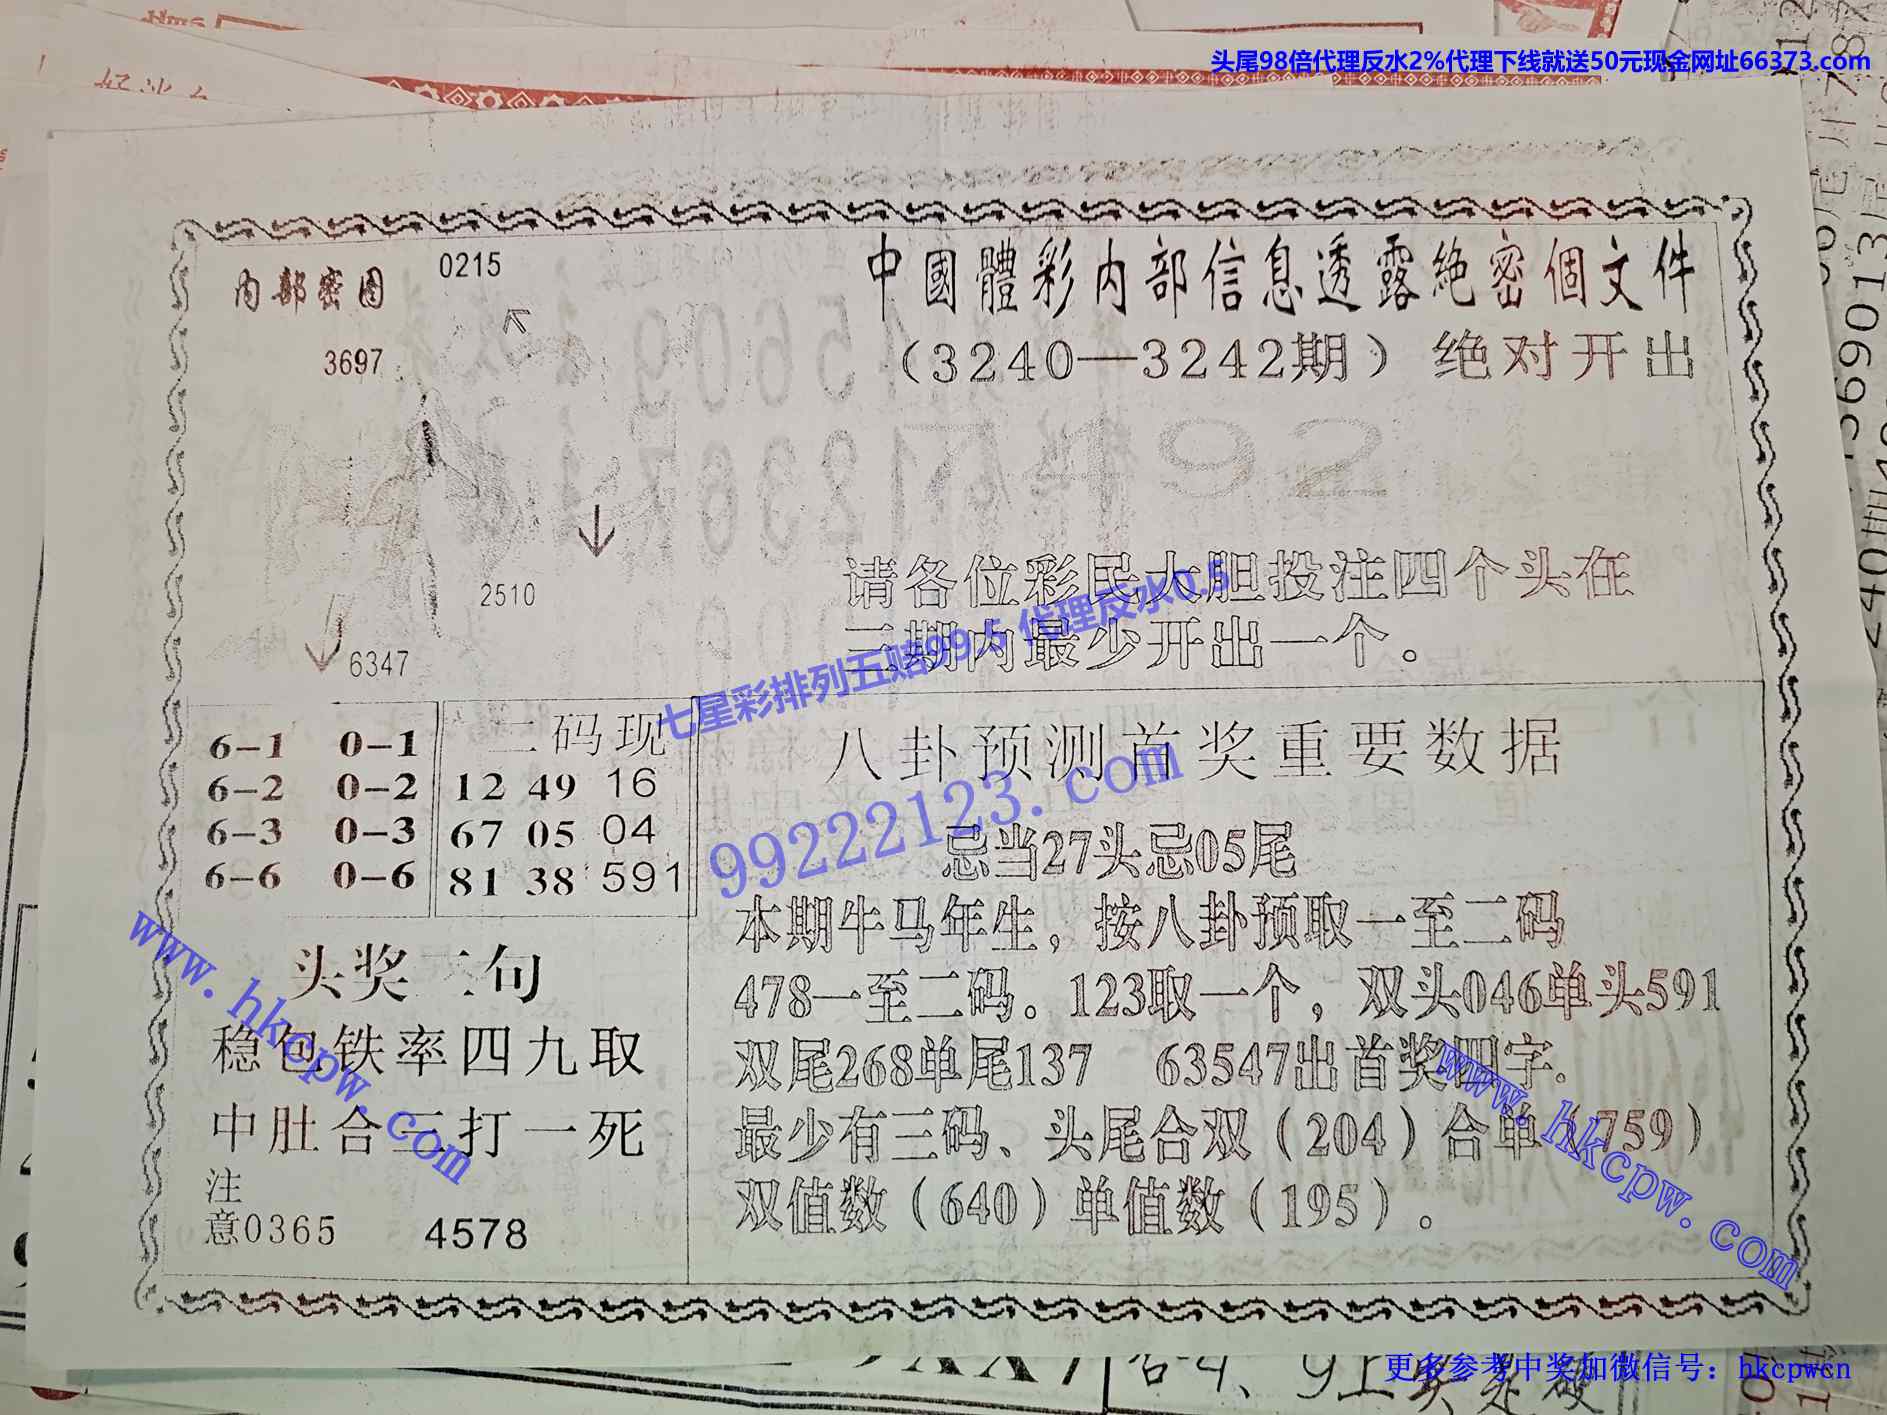 头尾98倍代理反水2%代理下线就送50元现金网址66373.com
内部密图
0215
3697
2510
6347
中國體彩内部信息透露絶密個文件
（3240—3242期）绝对开出
192
请各位彩民大胆投注四个头在
三期内最少开出一个。
七星彩排列五赔99.5 代理反水0.5
99222123.com
6-1 0-1
6-2 0-2
6-3 0-3
6-6 0-6
二码现
12 49 16
67 05 04
81 38 591
八卦预测首奖重要数据
忌当27头忌05尾
本期牛马年生，按八卦预取一至二码
478一至二码。123取一个，双头046单头591
双尾268单尾137 63547出首奖四字.
最少有三码、头尾合双（204）合单（759）
双值数（640）单值数（195）。
头奖二句
稳包铁率四九取
中肚合三打一死
注
意0365 4578
www.hkcpw.com
www.hkcpw.com
更多参考中奖加微信号：hkcpwcn